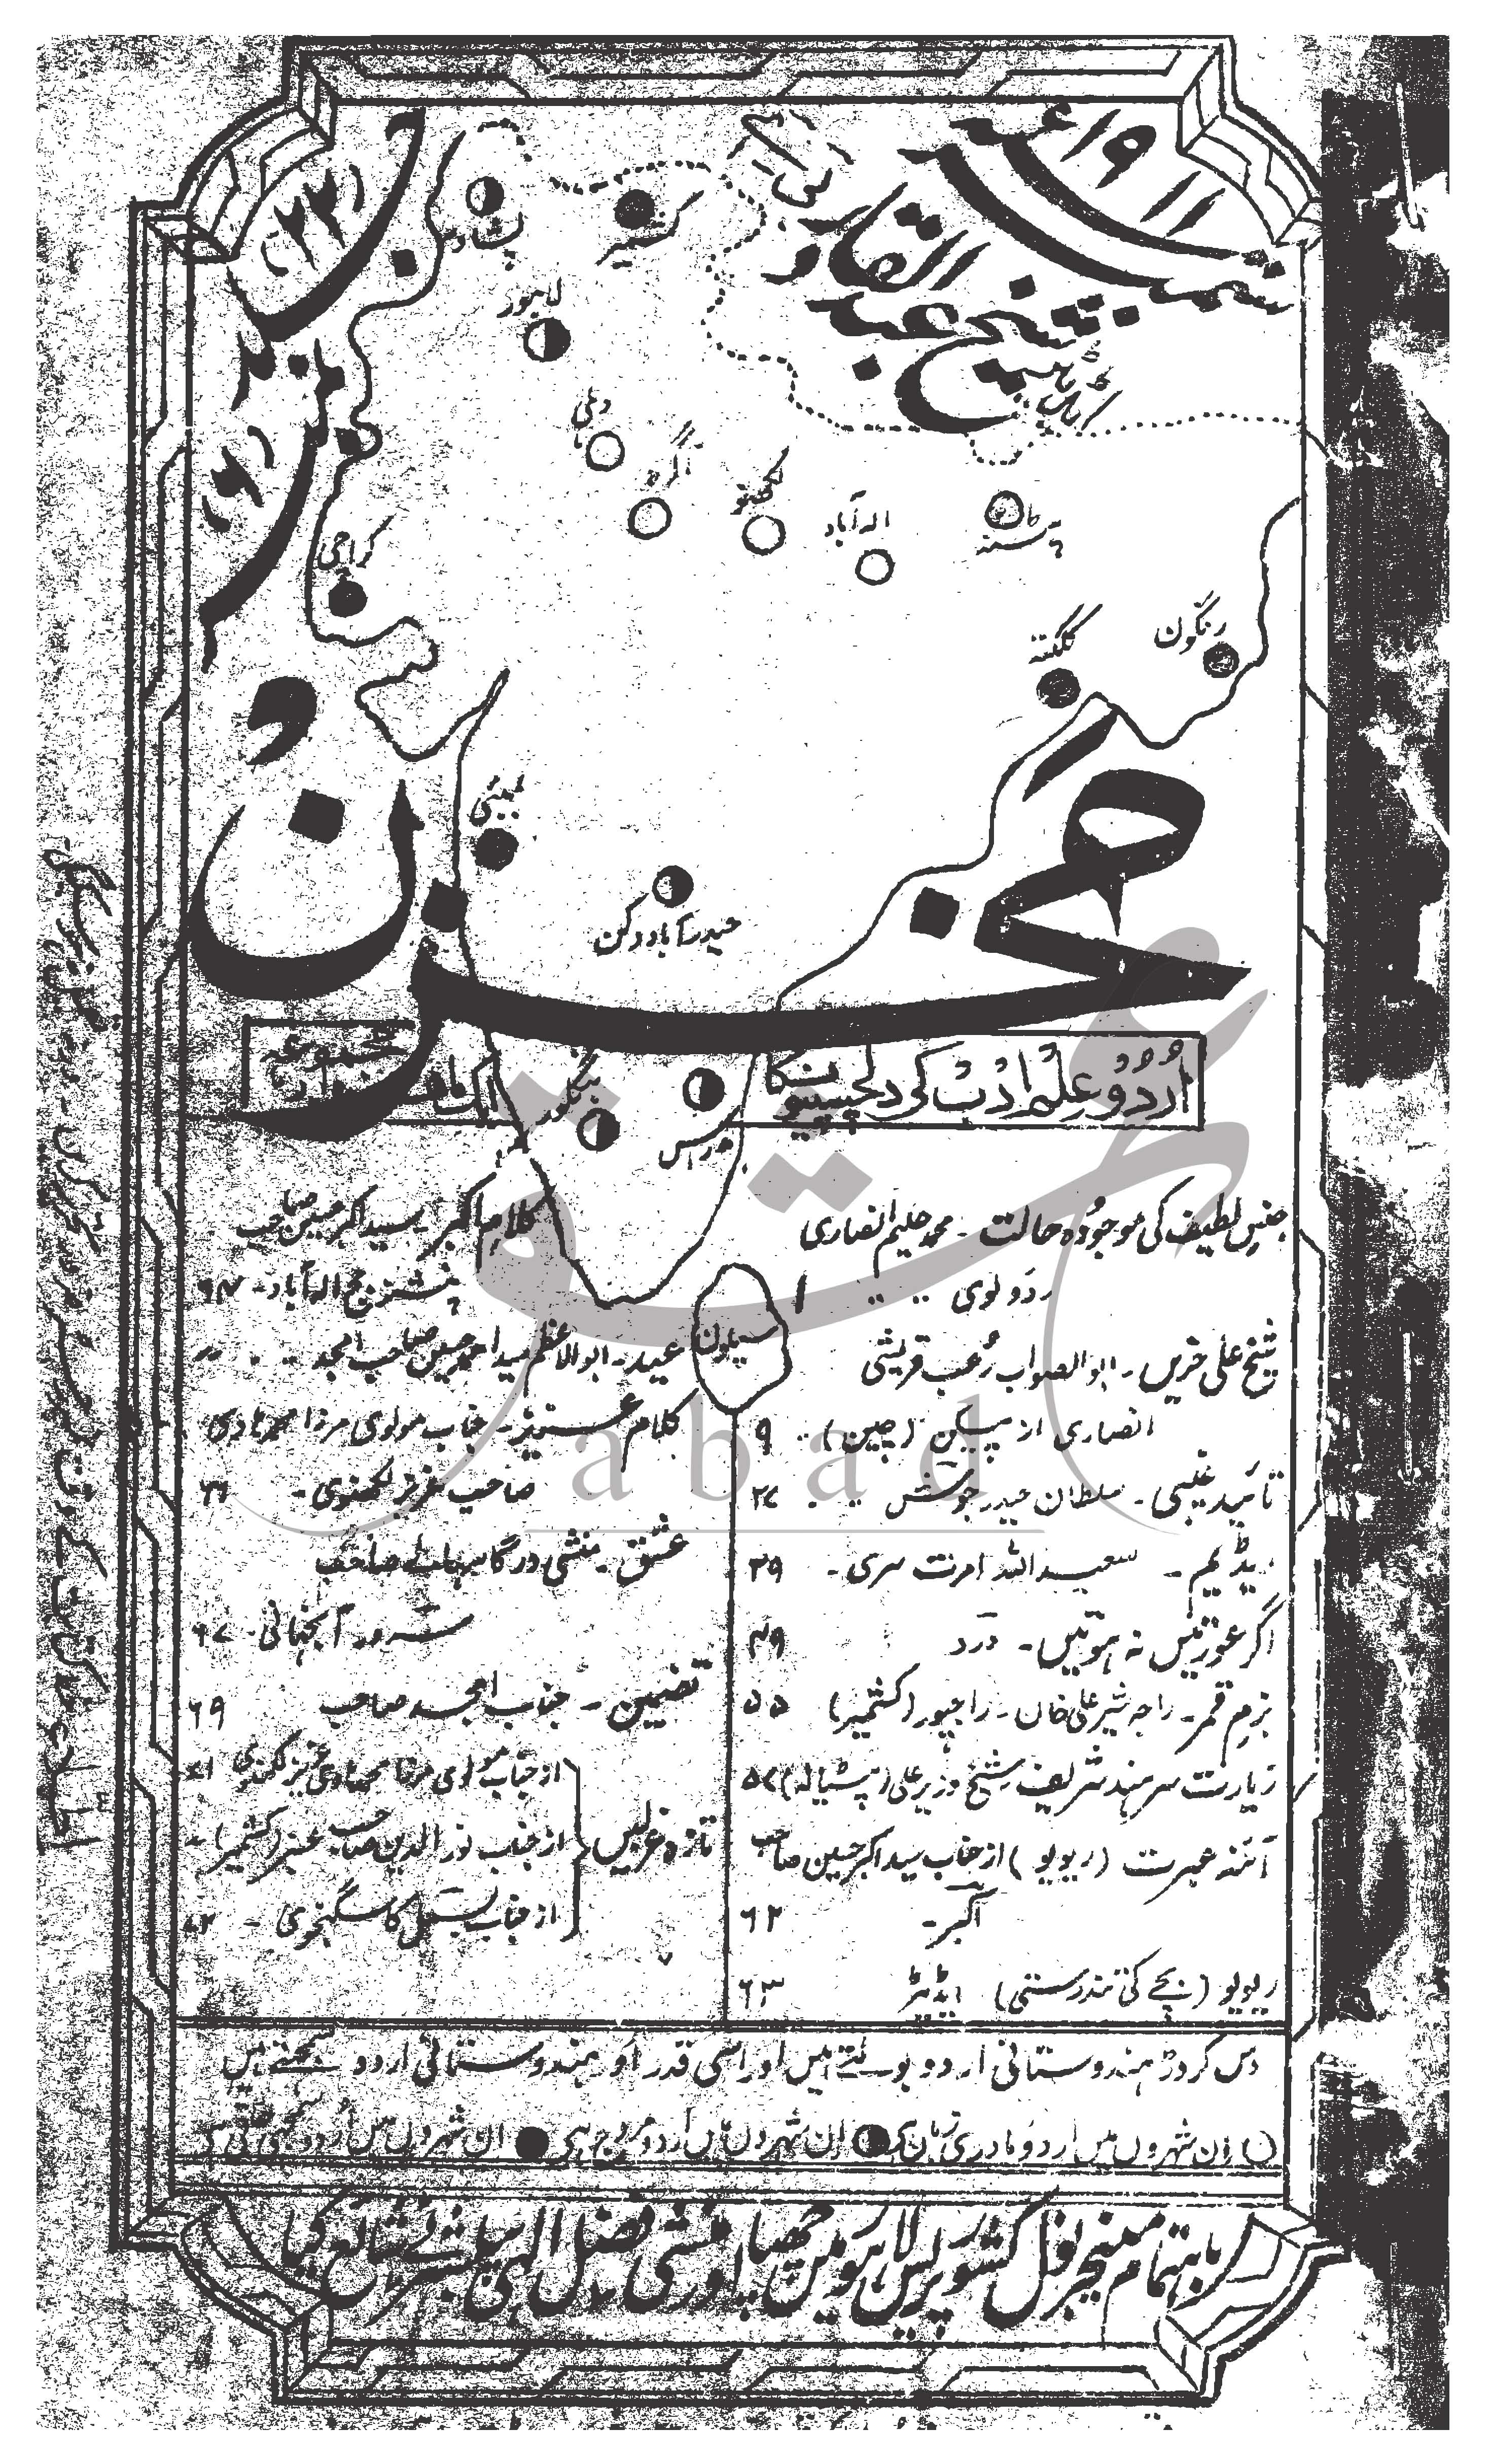 ستمبر ۱۹۱۱ء
شیخ عبدالقادر
بی اے
جلد (۲۲)
نمبر (۶)
پشاور
کشمیر
لاہور
دہلی
آگرہ
لکھنؤ
الہ آباد
پٹنہ
کراچی
کلکتہ
رنگون
بمبئی
حیدرآباد دکن
مخزن
اُردو علم ادب کی دلچسپیوں کا
مجموعہ
بنگلور
مدراس
سیلون
جنس لطیف کی موجودہ حالت - محمد حلیم انصاری
ردولوی ۱
شیخ علی حزیں - ابوالصواب رُعب قریشی
انصاری از پیکن (چین) ۹
تائید غیبی - سلطان حیدر جوش ۲۷
یڈیم - سعید اللہ امرت سری - ۳۹
اگر عورتیں نہ ہوتیں - درد ۴۹
بزم قمر - راجہ شیر علی خاں - راجپور (کشمیر) ۵۵
زیارت سرہند شریف شیخ وزیر علی (پٹیالہ) ۵۷
آئنہ عبرت (ریویو) از جناب سید اکبر حسین صاحب
اکبر - ۶۲
ریویو (بچے کی تندرستی) ایڈیٹر ۶۳
کلام اکبر - سید اکبر حسین صاحب
پنشنر جج الہ آباد - ۶۴
عید - ابوالاعظم سید احمد حسین صاحب امجد
کلام عزیز - جناب مولوی مرزا محمد ہادی
صاحب عزیز لکھنوی - ۶۶
عشق - منشی درگا سہائے صاحب
سرور آنجہانی - ۶۷
تضمین - جناب امجد صاحب ۶۹
تازہ غزلیں
از جناب مولوی مرزا محمد ہادی عزیز لکھنوی ۷۱
از جناب نور الدین صاحب عنبر (کشمیر)
از جناب بسمل کاسگنجوی - ۷۲
دس کروڑ ہندوستانی اردو بولتے ہیں اور اسی قدر اور ہندوستانی اردو سمجھتے ہیں
ان شہروں میں اردو مادری زبان ہے ان شہروں میں اُردو مروج ہے ان شہروں میں اُردو سمجھی جاتی ہے
باہتمام منیجر نول کشور پریس لاہور میں چھپا اور منشی فضل الٰہی پبلشر نے شائع کیا
abad